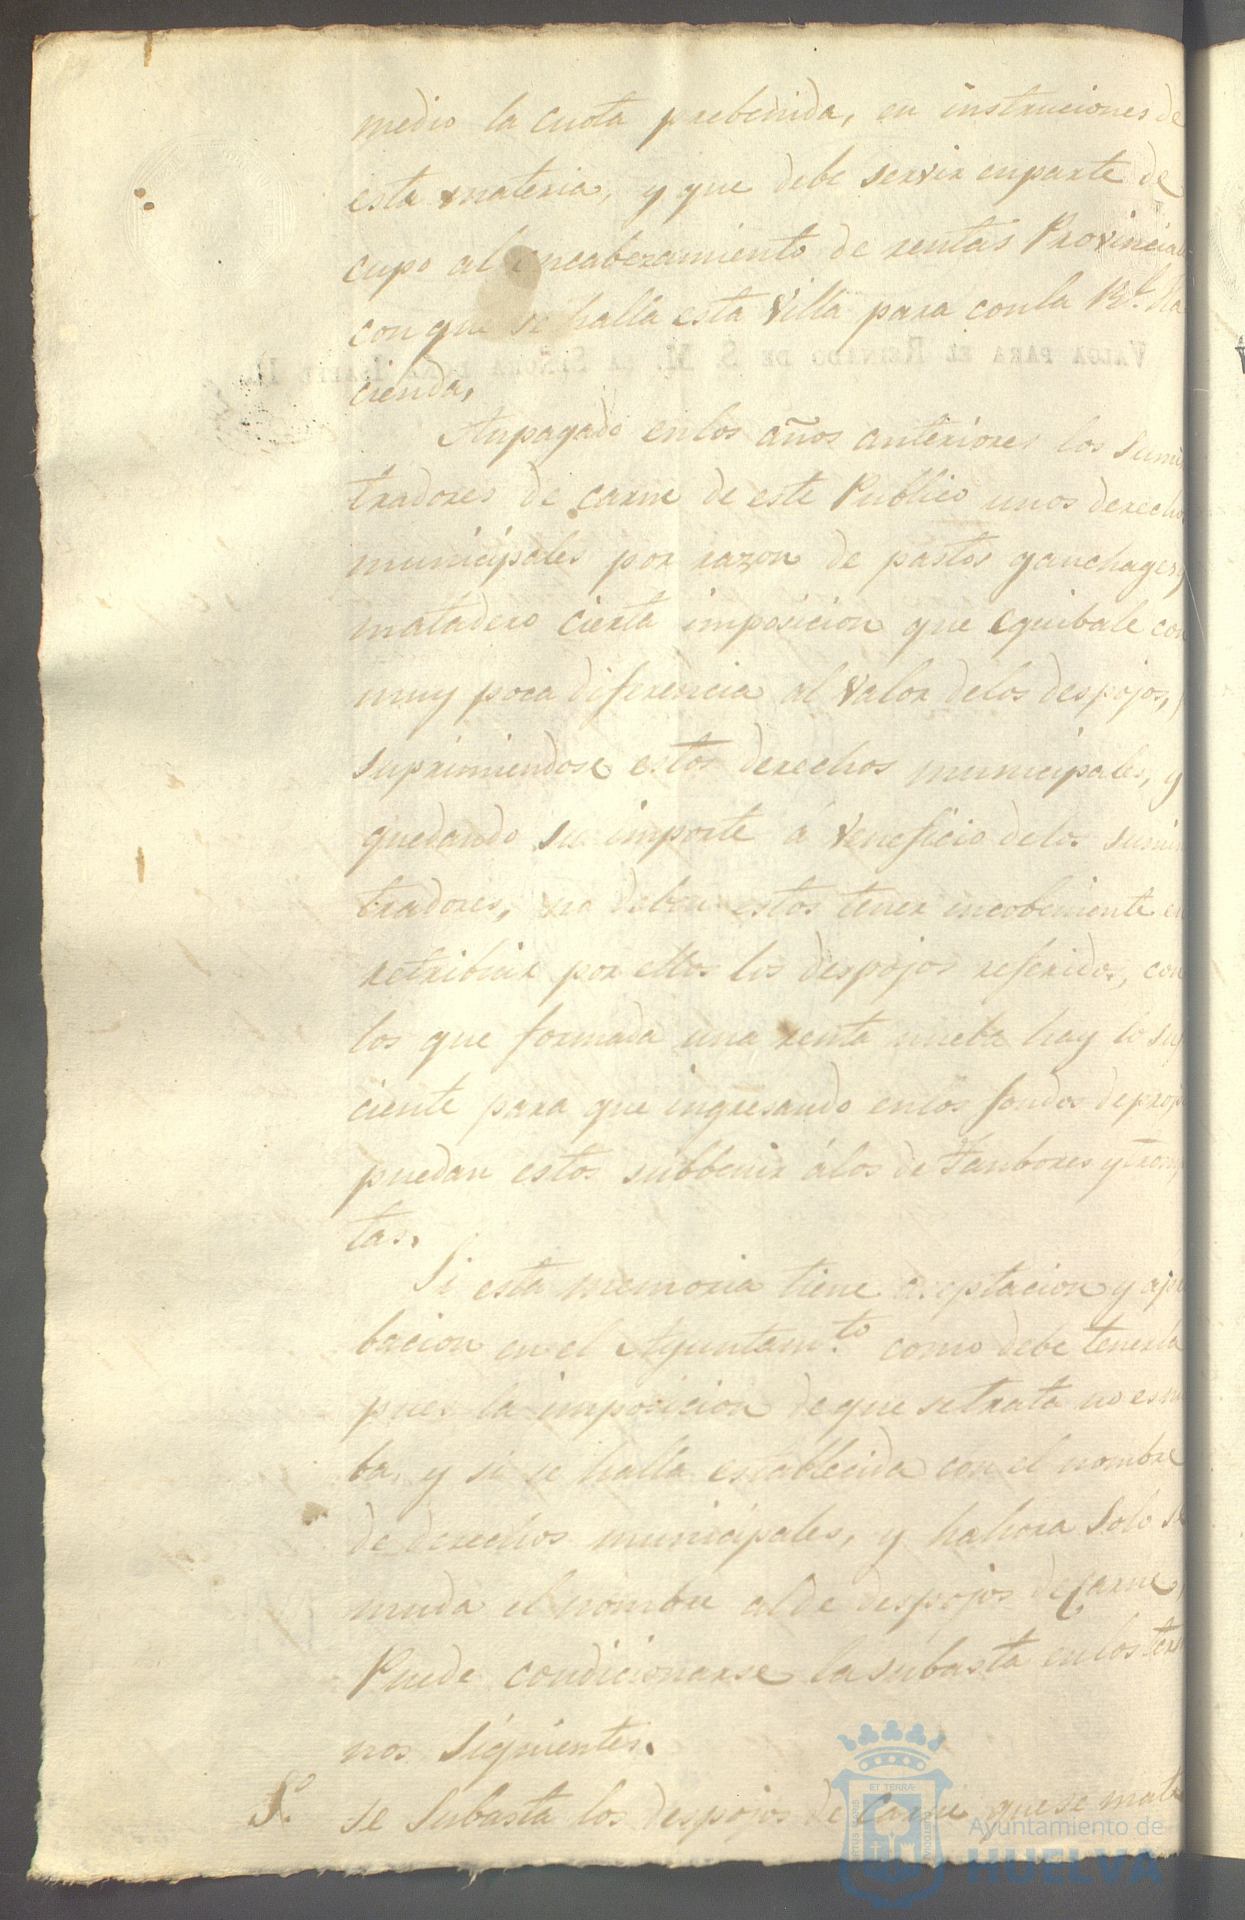 medio la cuota prebenida, en instruciones de
esta materia, y que debe servir enparte de
cupo al encabezamiento de rentas Provincial
conque se halla esta Villa para conla Rl. Ha
cienda,
Anpagado enlos años anteriores los Sumi
tradores de carne de este Publico unos derecho
municipales por razon de pastos ganchages y
matadero cierta imposicion que equibale con
muy poca diferencia al valor delos despojos,
suprimiendose estos derechos municipales, y
quedando su importe á veneficio delos sumin
tradores, no deben estos tener incobeniente en
retribuir por ellos los despojos referidos, con
los que formada una renta nueba hay lo suf
ciente para que ingresando enlos fondos deprop
puedan estos subbenir álos de Tanbores y tromp
tas.
Si esta memoria tiene aceptacion y apr
bacion en el Ayuntamto. como debe tenerla
pues la imposicion deque setrata no es nu
ba, y si se halla establecida con el nombre
de derechos municipales, y hahora Solo se
muda el nombre alde despojos de Carne,
Puede condicionarse la subasta enlos term
nos Siguientes.
Se Subasta los despojos de Carne que se mate
VALGA PARA EL REINADO DE S. M. LA SEÑORA DOÑA ISABEL II.
ET TERRÆ
Ayuntamiento de
HUELVA